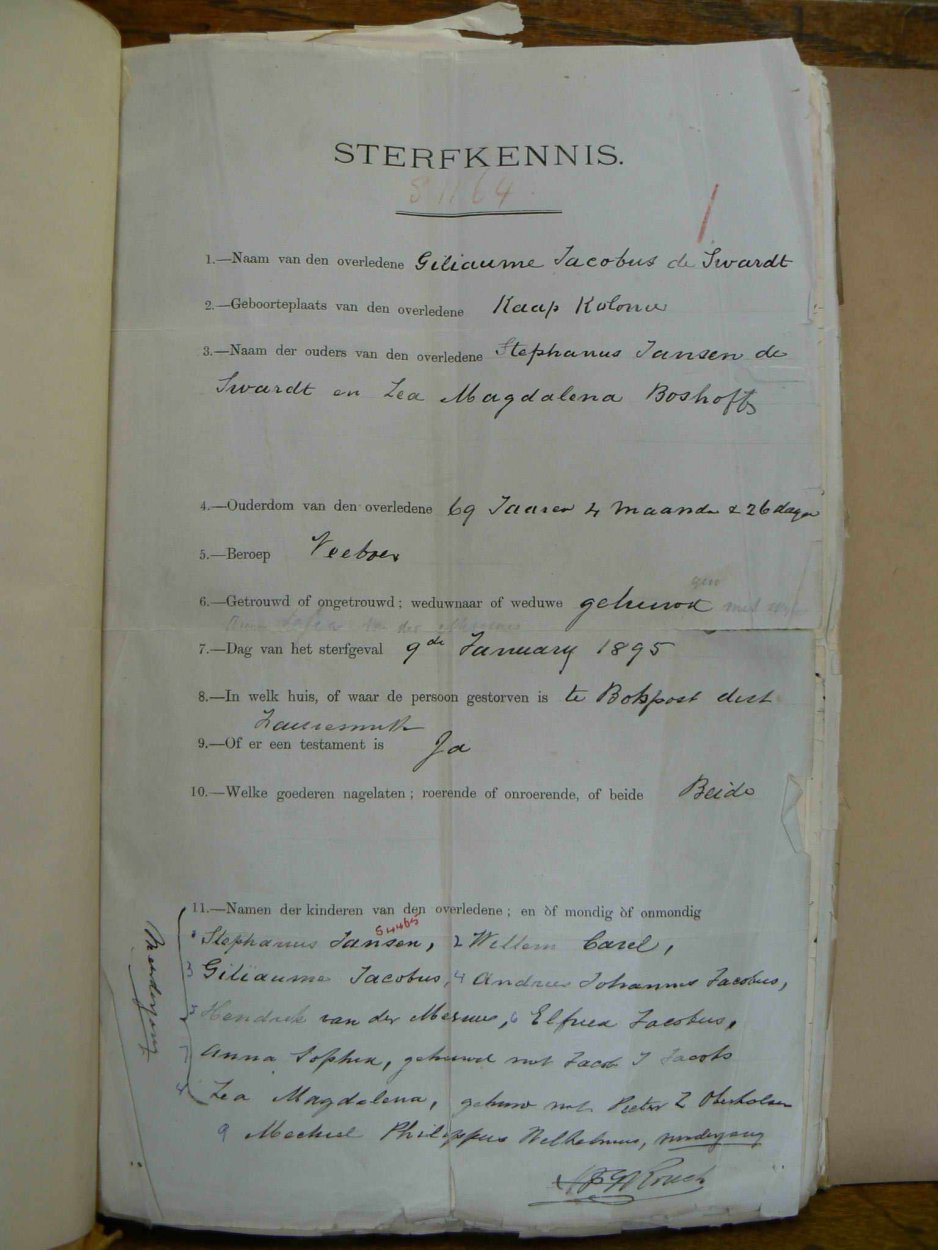 STERFKENNIS.
S 1164
1.—Naam van den overledene Giliaume Jacobus de Swardt
2.—Geboorteplaats van den overledene Kaap Kolonie
3.—Naam der ouders van den overledene Stephanus Jansen de
Swardt en Lea Magdalena Boshoff
4.—Ouderdom van den overledene 69 Jaaren 4 maanden & 26 dagen
5.—Beroep Veeboer
6.—Getrouwd of ongetrouwd; weduwnaar of weduwe gehuwd met
Sofia van der
7.—Dag van het sterfgeval 9de January 1895
8.—In welk huis, of waar de persoon gestorven is te Bokpost dist
9.—Of er een testament is Ja
10.—Welke goederen nagelaten; roerende of onroerende, of beide Beide
11.—Namen der kinderen van den overledene; en òf mondig òf onmondig
1 Stephanus Jansen, 2 Willem Carel,
3 Giliaume Jacobus, 4 Andries Johannes Jacobus,
5 Hendrik van der Merwe, 6 Elfrea Jacobus,
7 Anna Sophia, gehuwd met Jacob J Jacobs
8 Lea Magdalena, gehuwd met Pieter Z Oberholzer
9 Mechiel Philippus Wilhelmus, minderjarig
Meerderjarig